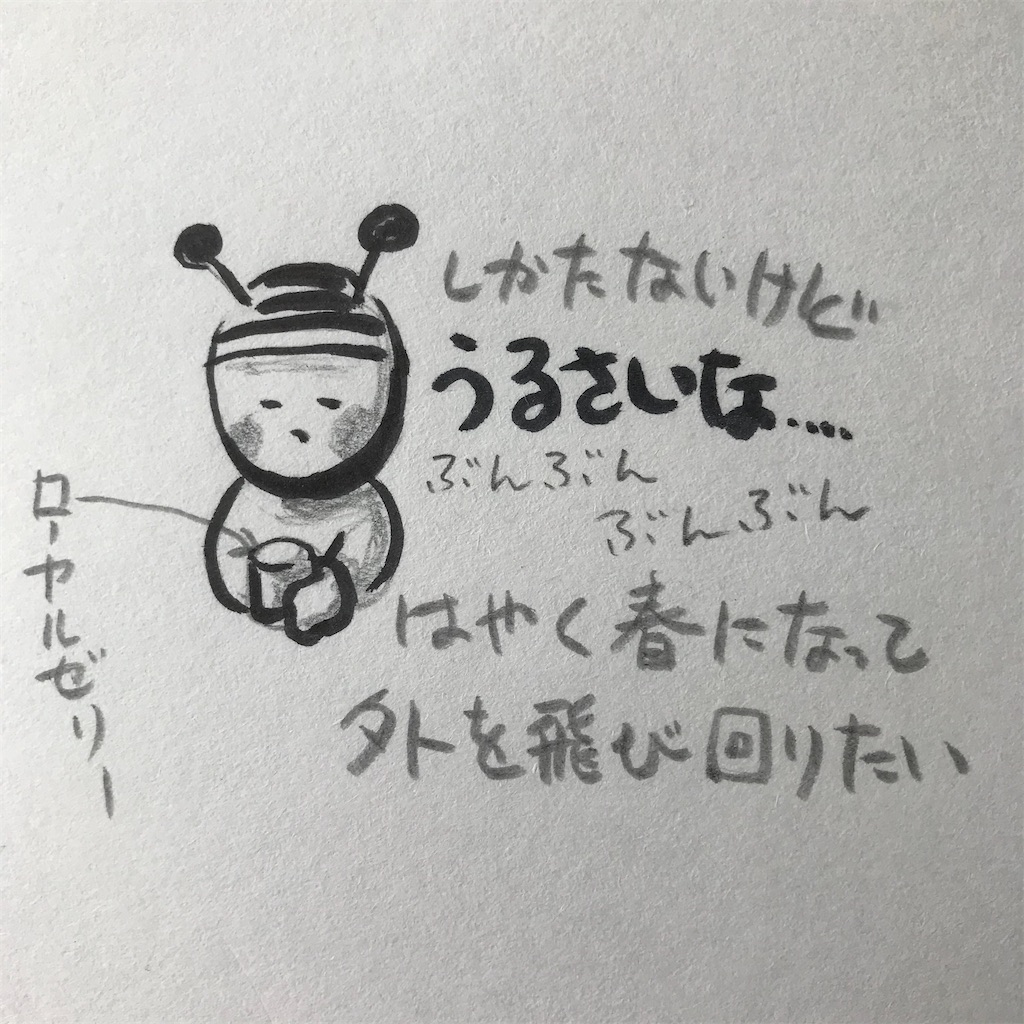 しかたないけど
うるさいな....
ぶんぶん
ぶんぶん
はやく春になって
外を飛び回りたい
ローヤルゼリー